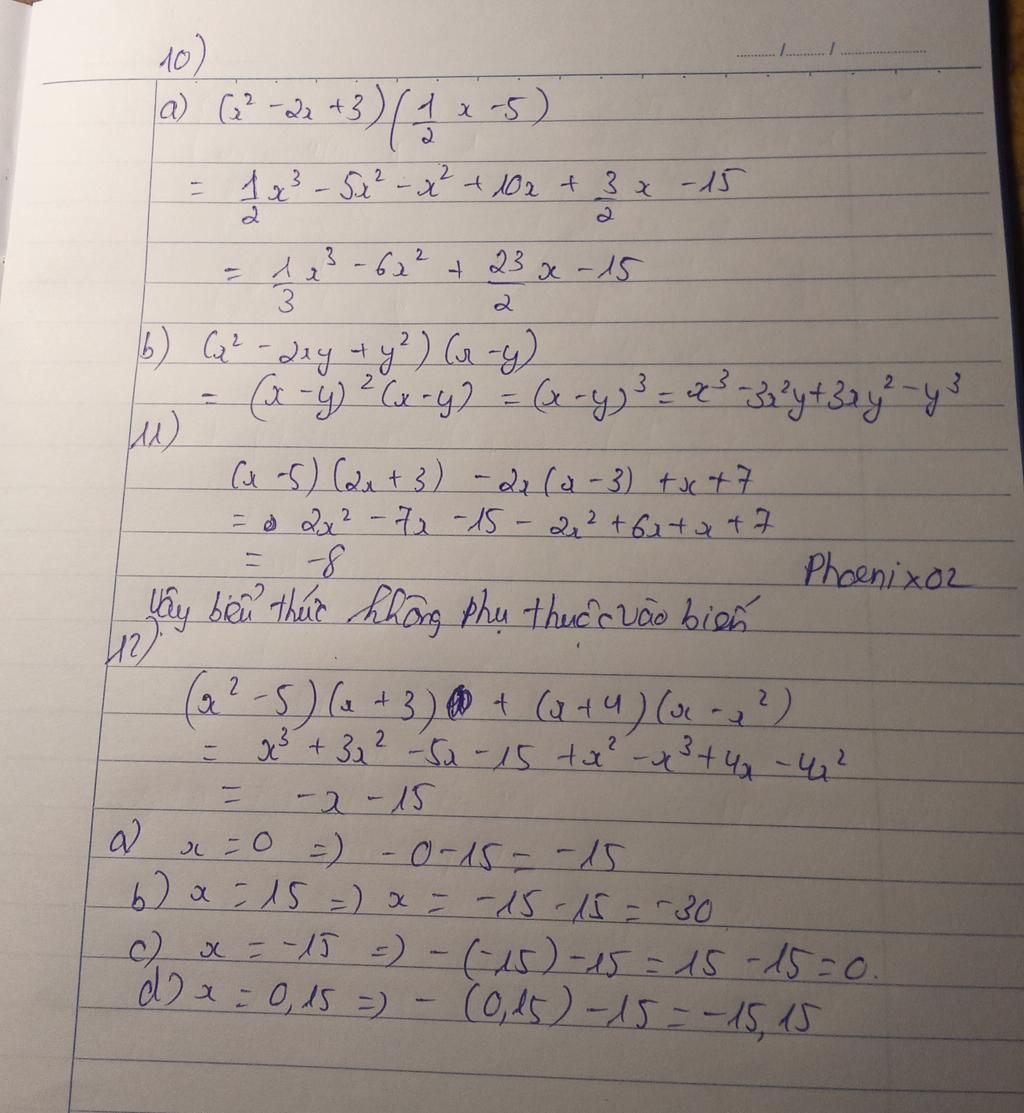 10)
a) (x² - 2x + 3)(1/2 x - 5)
= 1/2 x³ - 5x² - x² + 10x + 3/2 x - 15
= 1/3 x³ - 6x² + 23/2 x - 15
b) (x² - 2xy + y²)(x - y)
= (x - y)²(x - y) = (x - y)³ = x³ - 3x²y + 3xy² - y³
11)
(x - 5)(2x + 3) - 2x(x - 3) + x + 7
= 2x² - 7x - 15 - 2x² + 6x + x + 7
= -8
Phoenix02
Vậy biểu thức không phụ thuộc vào biến
12)
(x² - 5)(x + 3) + (x + 4)(x - x²)
= x³ + 3x² - 5x - 15 + x² - x³ + 4x - 4x²
= -x - 15
a) x = 0 => -0 - 15 = -15
b) x = 15 => x = -15 - 15 = -30
c) x = -15 => -(-15) - 15 = 15 - 15 = 0.
d) x = 0,15 => -(0,15) - 15 = -15,15